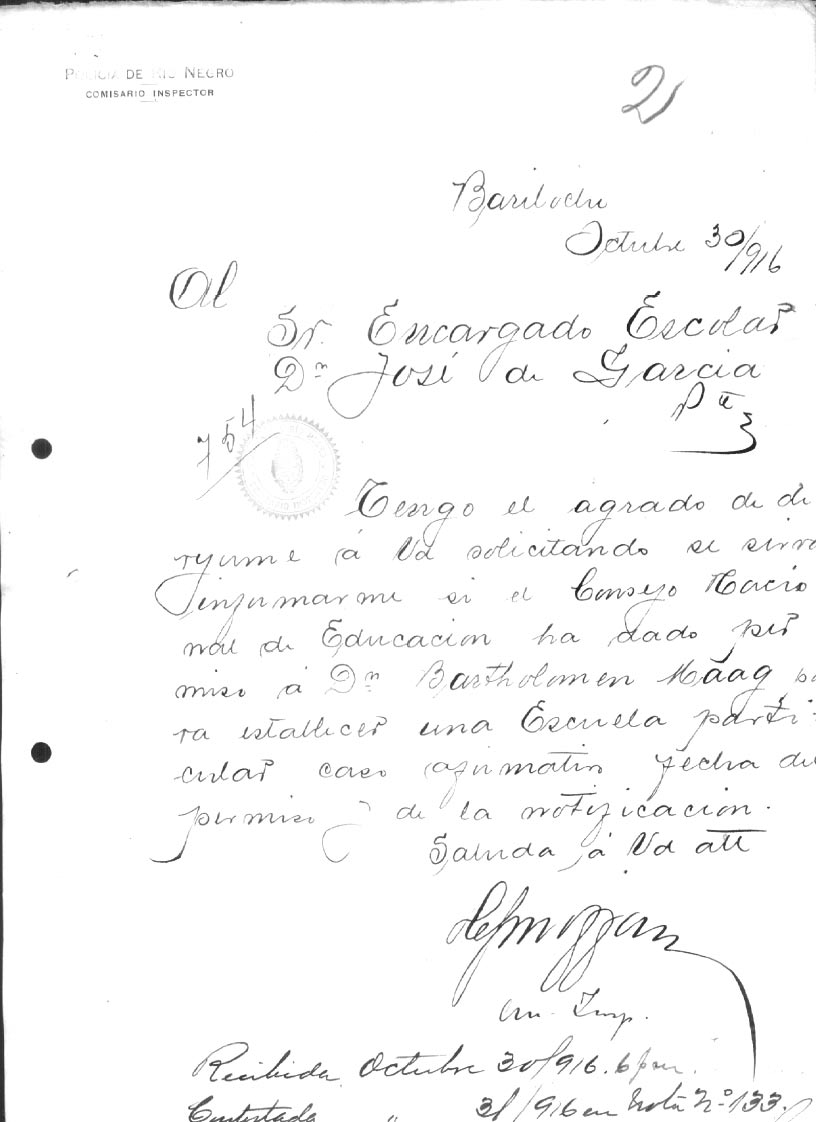 POLICIA DE RIO NEGRO
COMISARIO INSPECTOR
2
Bariloche
Octubre 30/916
Al
Sr. Encargado Escolar
Dn José de Garcia
Pte
754
Tengo el agrado de di
ryirme á Vd solicitando se sirva
informarme si el Consejo Nacio
nal de Educacion ha dado per
miso á Dn Bartholomen Mäag pa
ra establecer una Escuela parti-
cular caso afirmativo fecha del
permiso y de la notificacion.
Saluda á Vd att
Com. Insp.
Recibida Octubre 30/916. 6 pm.
Contestada " 31/916 en Nota No 133.